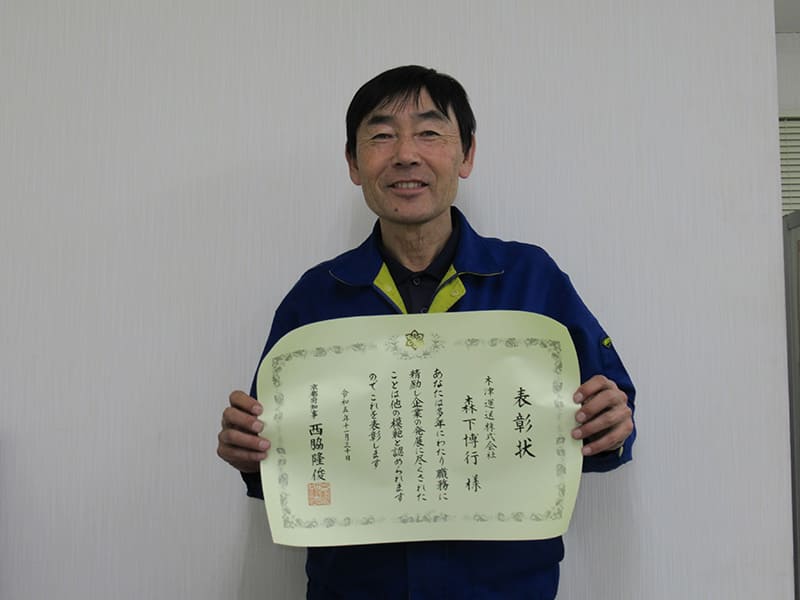 表彰状
木津運送株式会社
森下博行 様
あなたは多年にわたり職務に
精励し企業の発展に尽くされた
ことは他の模範と認められます
のでこれを表彰します
令和五年十一月三十日
京都府知事 西脇隆俊